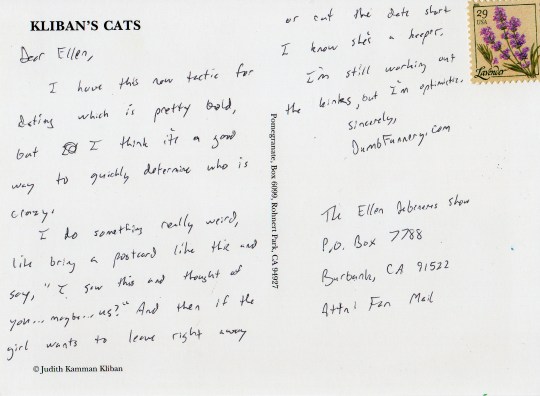 KLIBAN'S CATS
Dear Ellen,
I have this new tactic for
dating which is pretty bold,
but I think it's a good
way to quickly determine who is
crazy.
I do something really weird,
like bring a postcard like this and
say, "I saw this and thought of
you... maybe... us?" And then if the
girl wants to leave right away
© Judith Kamman Kliban
Pomegranate, Box 6099, Rohnert Park, CA 94927
or cut the date short
I know she's a keeper.
I'm still working out
the kinks, but I'm optimistic.
Sincerely,
DumbFunnery.com
29
USA
Lavender
The Ellen DeGeneres Show
P.O. Box 7788
Burbank, CA 91522
Attn: Fan Mail